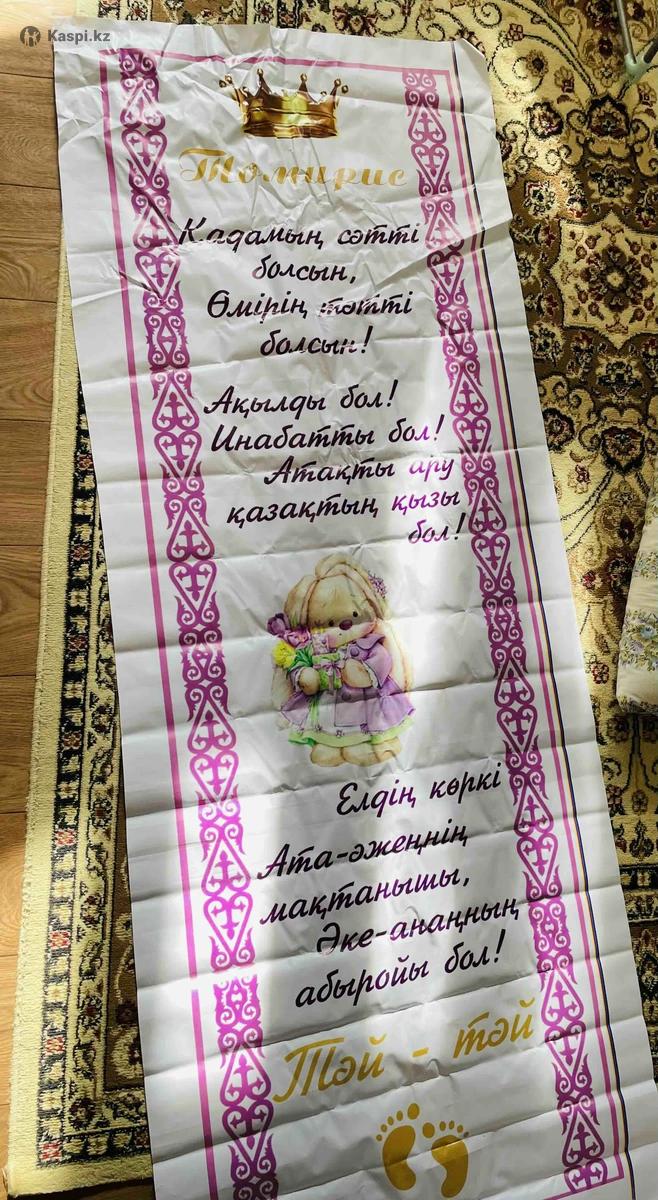 Kaspi.kz
Томирис
Қадамың сәтті
болсын,
Өмірің тәтті
болсын!
Ақылды бол!
Инабатты бол!
Атақты ару
қазақтың қызы
бол!
Елдің көркі
Ата-әжеңнің
мақтанышы,
Әке-анаңның
абыройы бол!
Тәй - тәй